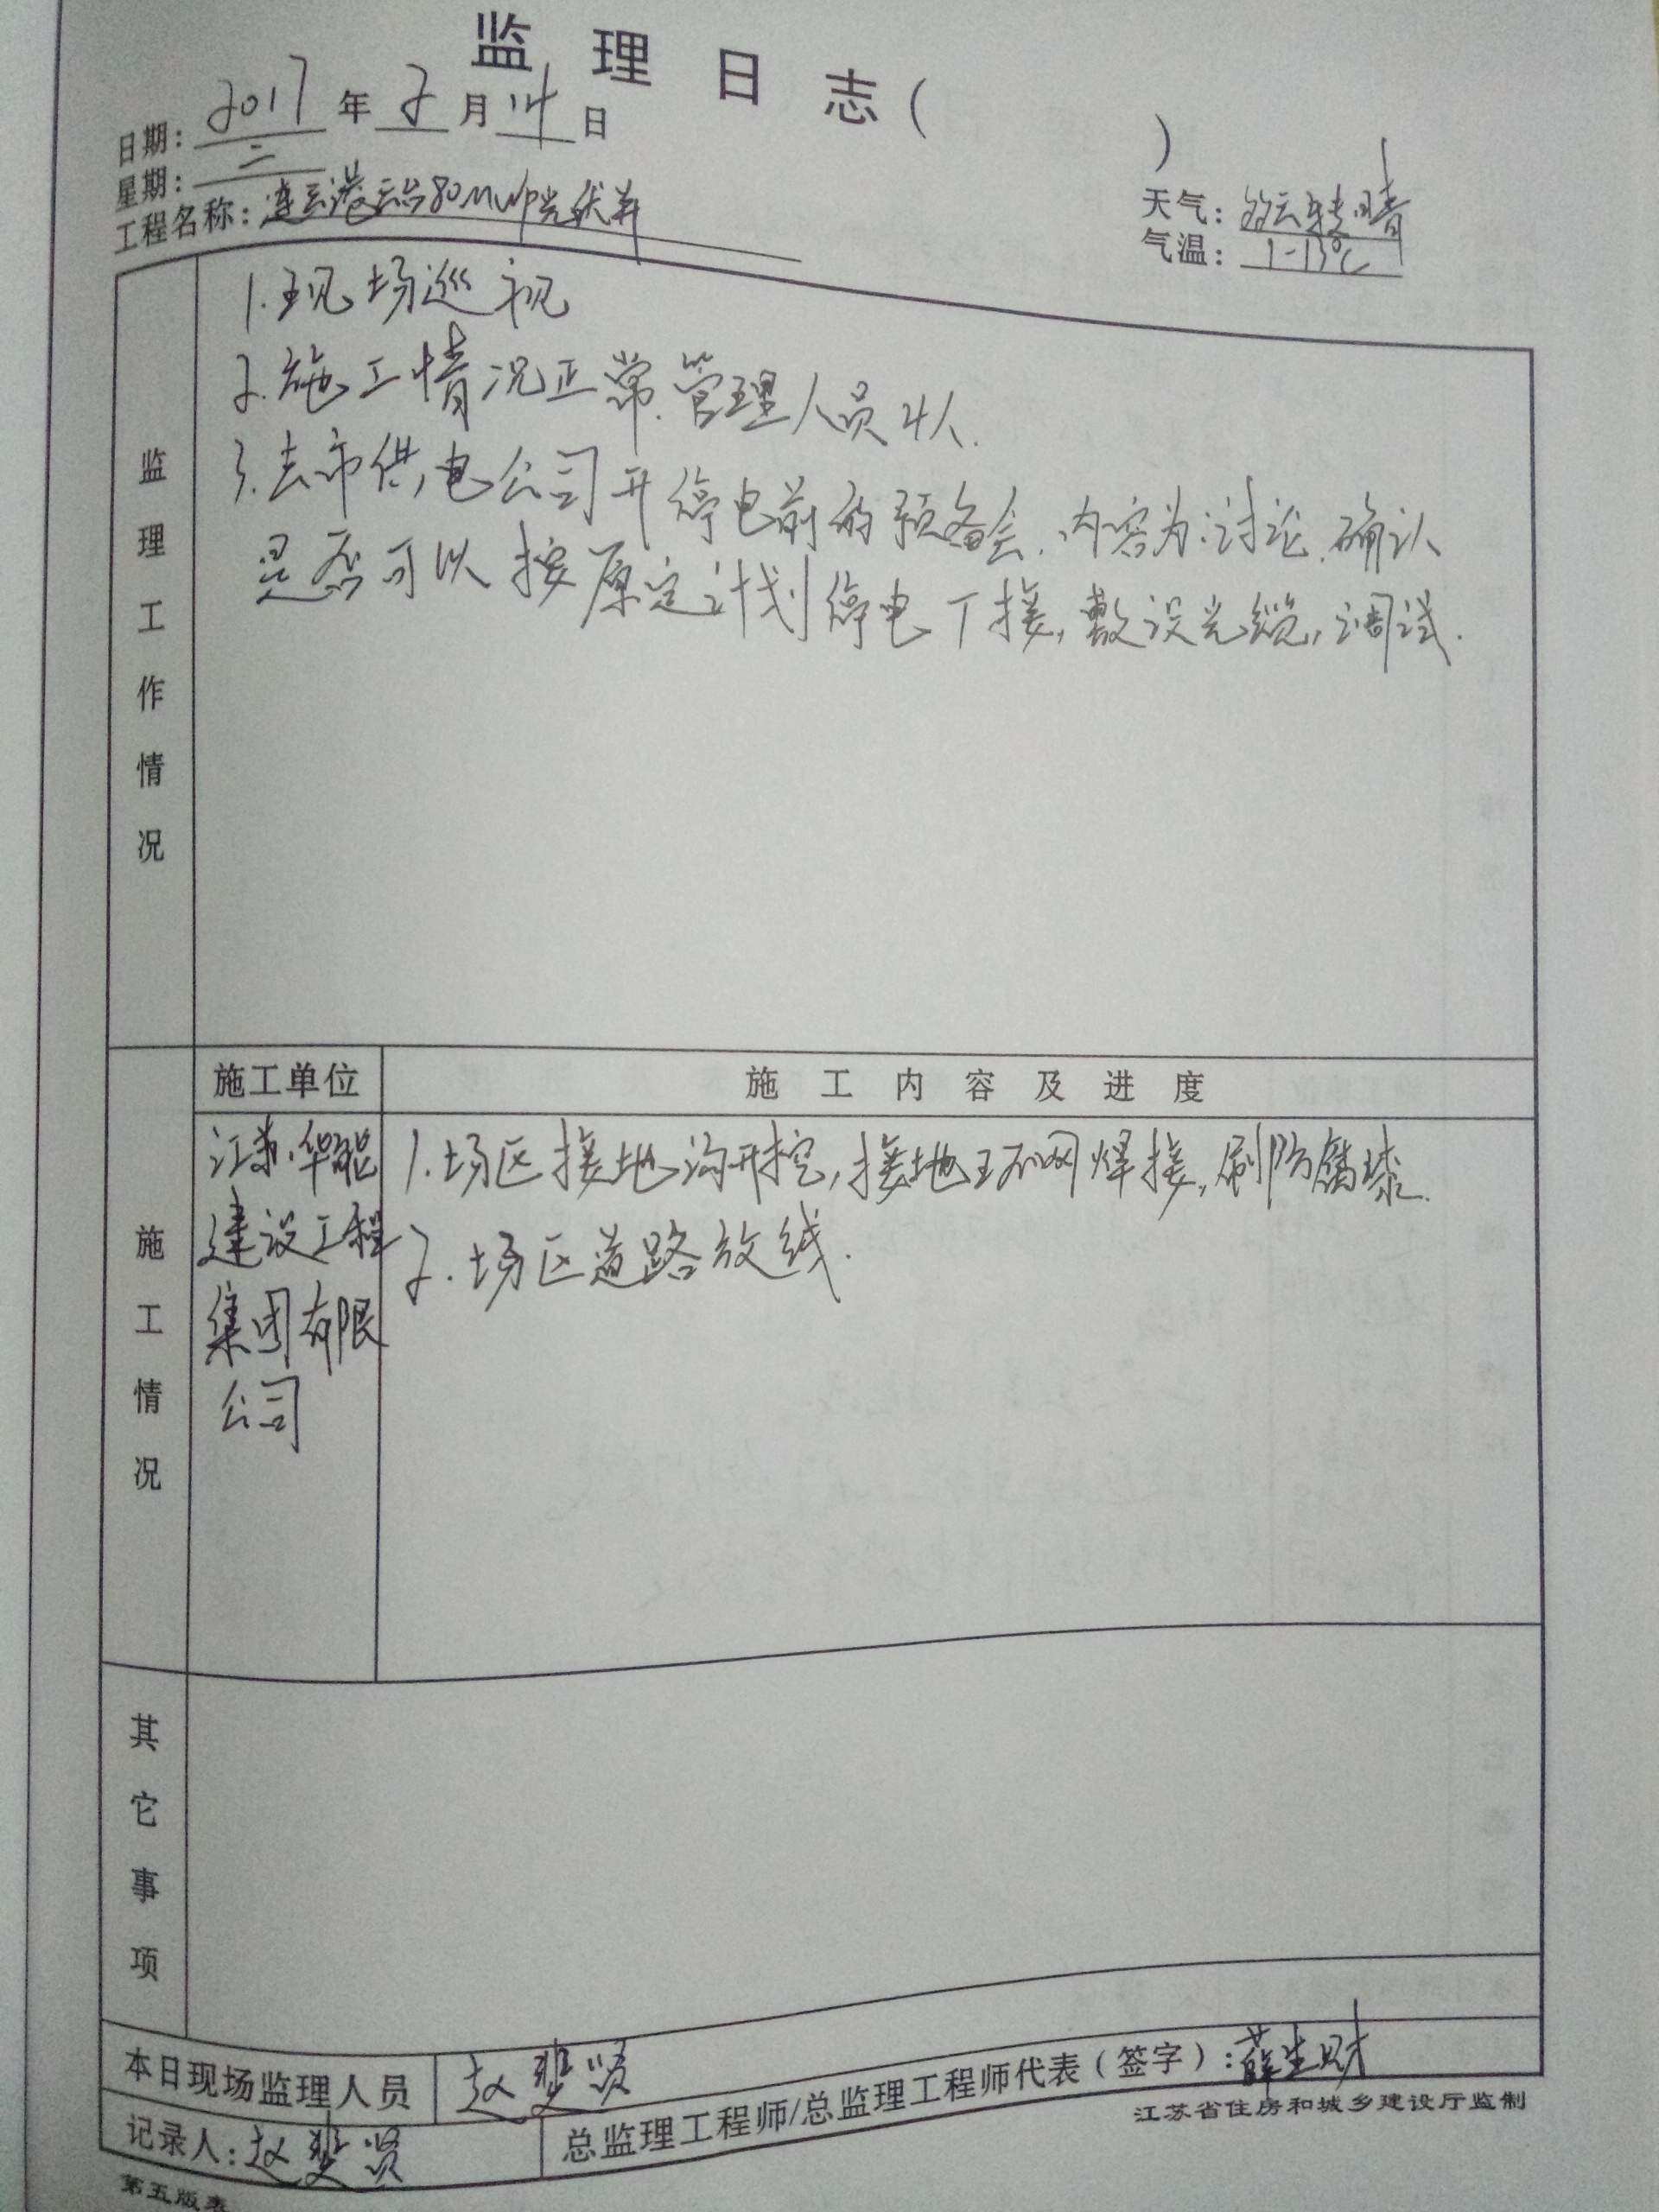 监理日志（ ）
日期：2017年2月14日
星期：二
工程名称：连云港云台80MWp光伏并
天气：多云转晴
气温：1-13℃
监理工作情况
1.现场巡视
2.施工情况正常.管理人员4人.
3.去市供电公司开停电前的预备会.内容为:讨论.确认
是否可以按原定计划停电T接,敷设光缆,调试.
施工情况
施工单位
施工内容及进度
江苏华能
建设工程
集团有限
公司
1.场区接地沟开挖,接地环网焊接,刷防腐漆.
2.场区道路放线.
其它事项
本日现场监理人员 赵 贤
总监理工程师/总监理工程师代表（签字）：薛生财
记录人：赵 贤
江苏省住房和城乡建设厅监制
第五版表